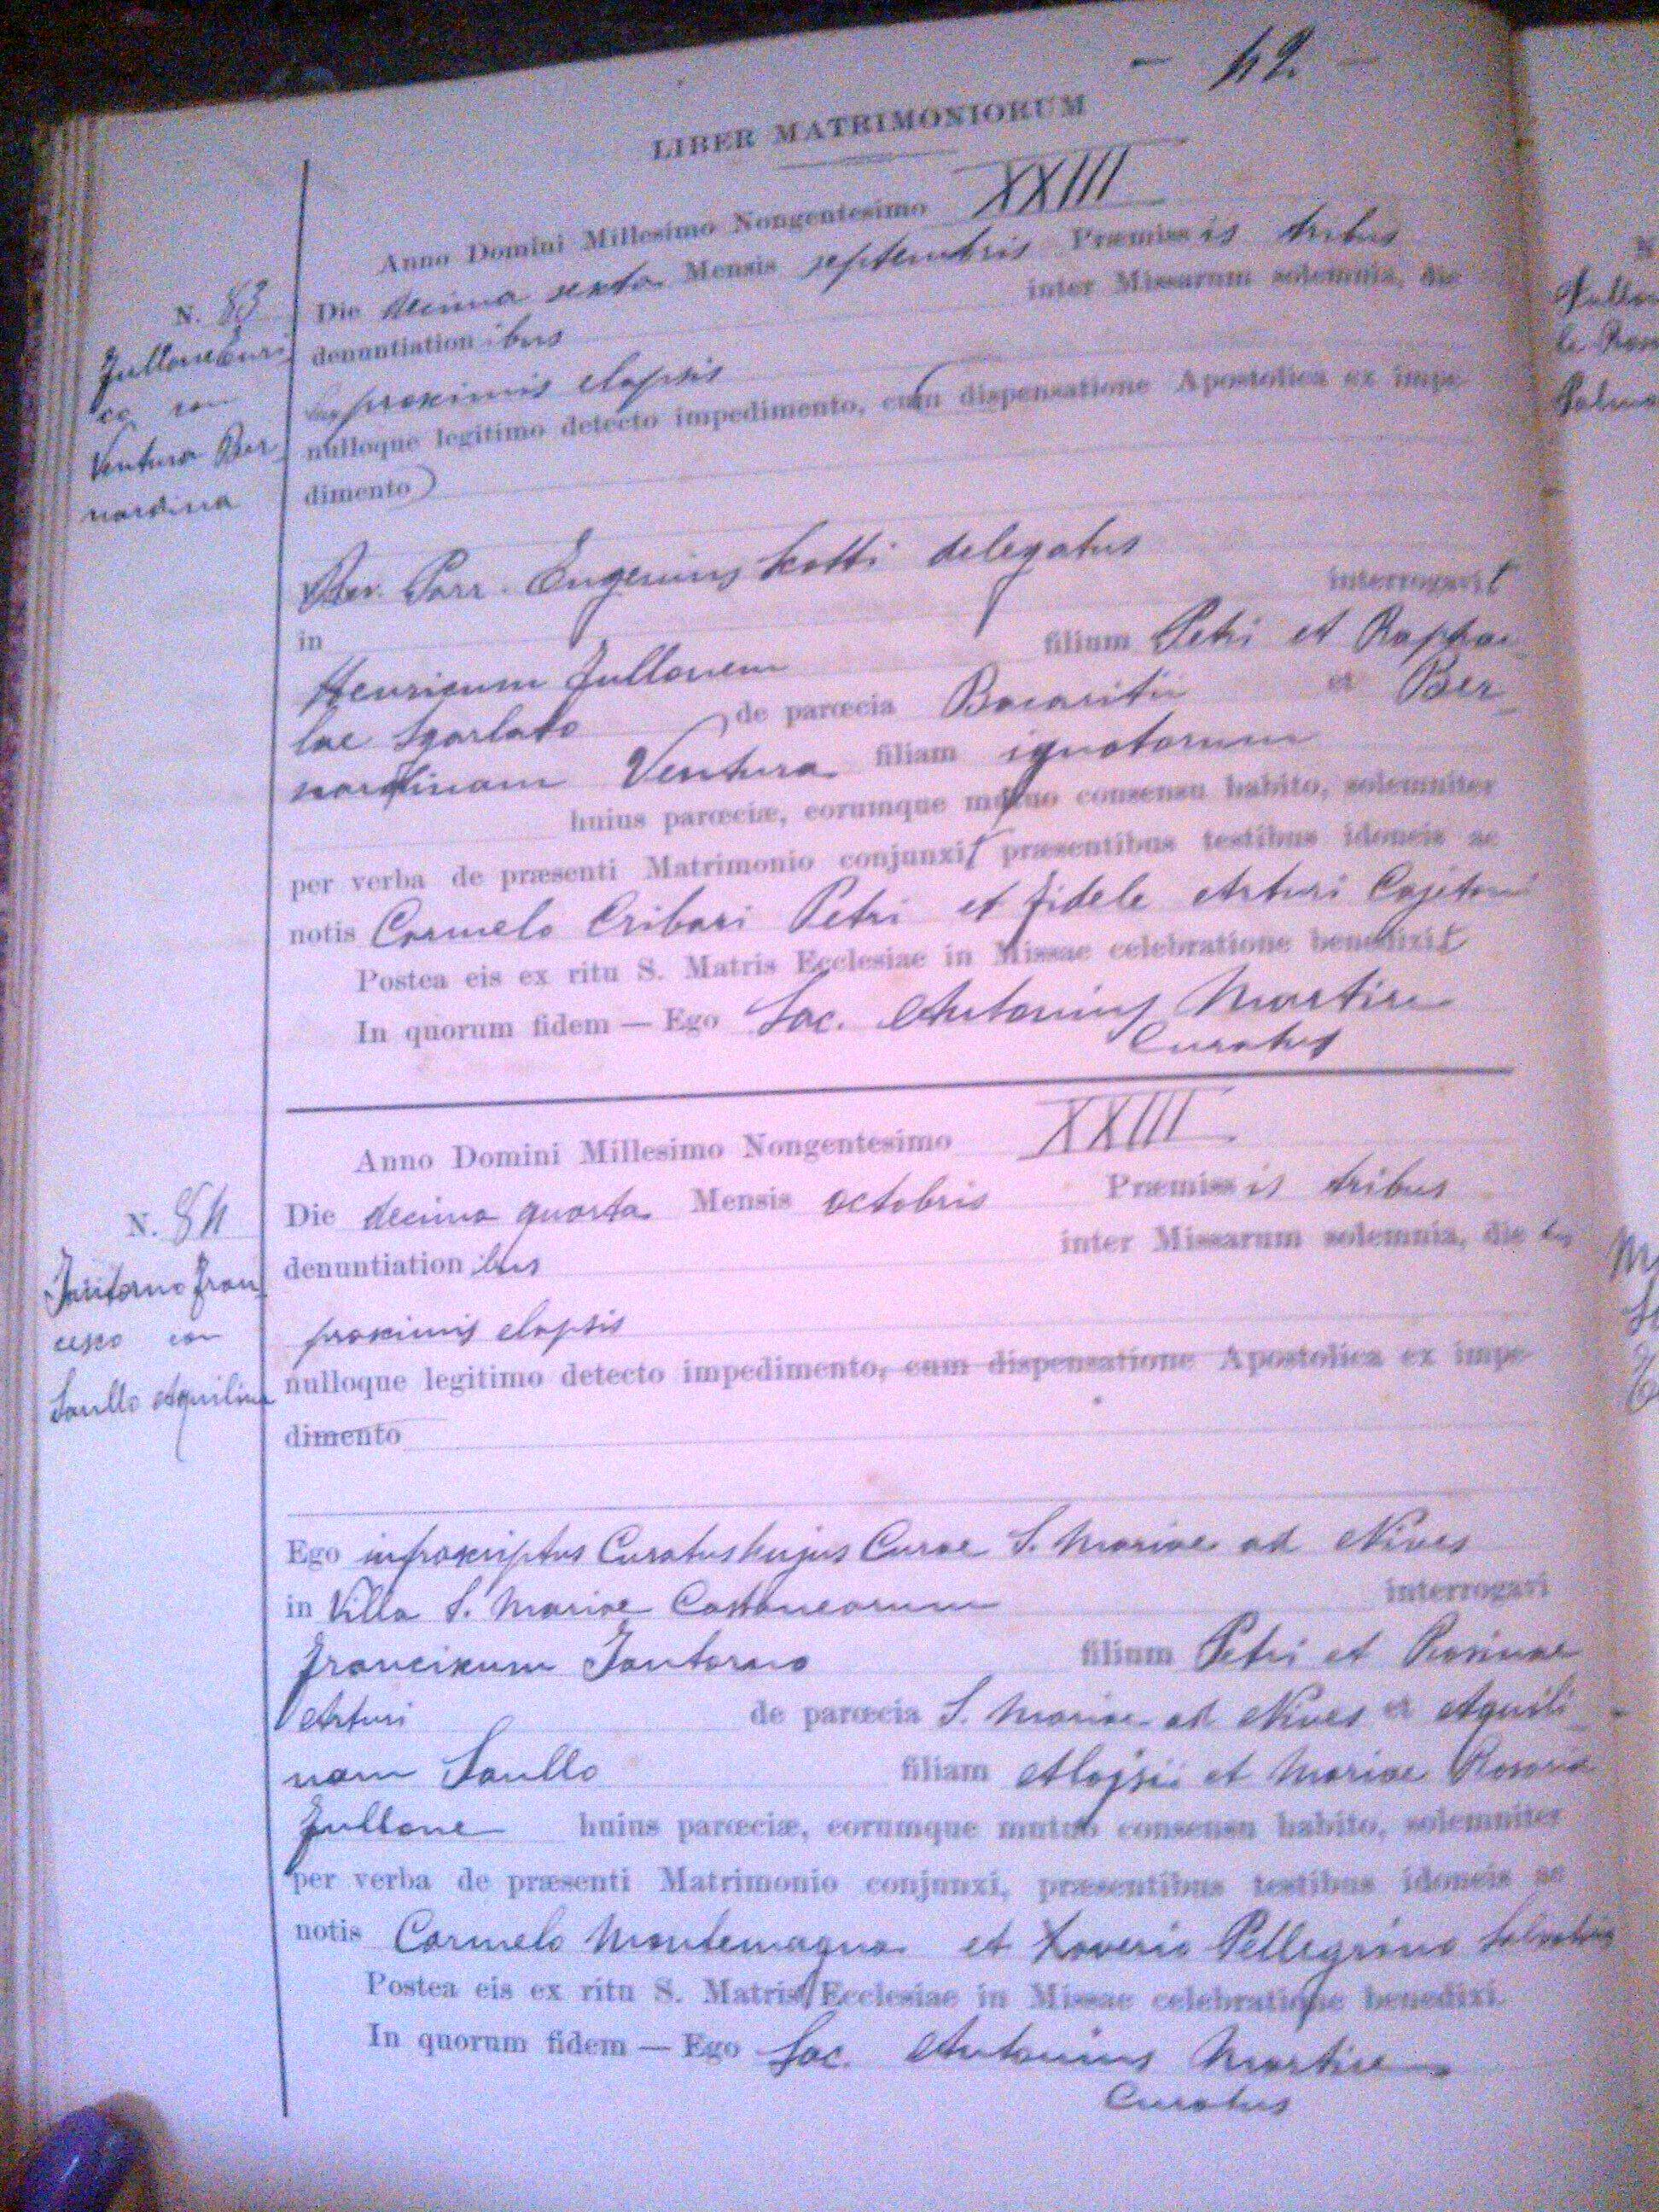 - 42. -
LIBER MATRIMONIORUM
Anno Domini Millesimo Nongentesimo XXIII
N. 83
Fullone Enri
co con
Ventura Ber
nardina
Die decima sexta Mensis septembris Præmissis tribus
denuntiationibus inter Missarum solemnia, die
proximis elapsis
nulloque legitimo detecto impedimento, cum dispensatione Apostolica ex impe-
dimento)
Rev. Parr. Eugenius Scotti delegatus
in interrogavit
Henricum Fullonem filium Petri et Raphae
lae Sgarlato de parœcia Bucaritii et Ber
nardinam Ventura filiam ignotorum
huius parœciæ, eorumque mutuo consensu habito, solemniter
per verba de præsenti Matrimonio conjunxit præsentibus testibus idoneis ac
notis Carmelo Cribari Petri et Fidele Arturi Cajetani
Postea eis ex ritu S. Matris Ecclesiae in Missae celebratione benedixit
In quorum fidem — Ego Sac. Antonius Martire
Curatus
Anno Domini Millesimo Nongentesimo XXIII
N. 84
Fran
cesco con
Saullo Aquilina
Die decima quarta Mensis octobris Præmissis tribus
denuntiationibus inter Missarum solemnia, die bus
proximis elapsis
nulloque legitimo detecto impedimento, cum dispensatione Apostolica ex impe-
dimento
Ego infrascriptus Curatus hujus Curae S. Mariae ad Nives
in Villa S. Mariae Castanearum interrogavi
Franciscum filium Petri et Rosinae
Arturi de parœcia S. Mariae ad Nives et Aquili
nam Saullo filiam Aloysii et Mariae Rosaria
Fullone huius parœciæ, eorumque mutuo consensu habito, solemniter
per verba de præsenti Matrimonio conjunxi, præsentibus testibus idoneis ac
notis Carmelo Montemagno et Xaverio Pellegrino
Postea eis ex ritu S. Matris Ecclesiae in Missae celebratione benedixi.
In quorum fidem — Ego Sac. Antonius Martire
Curatus